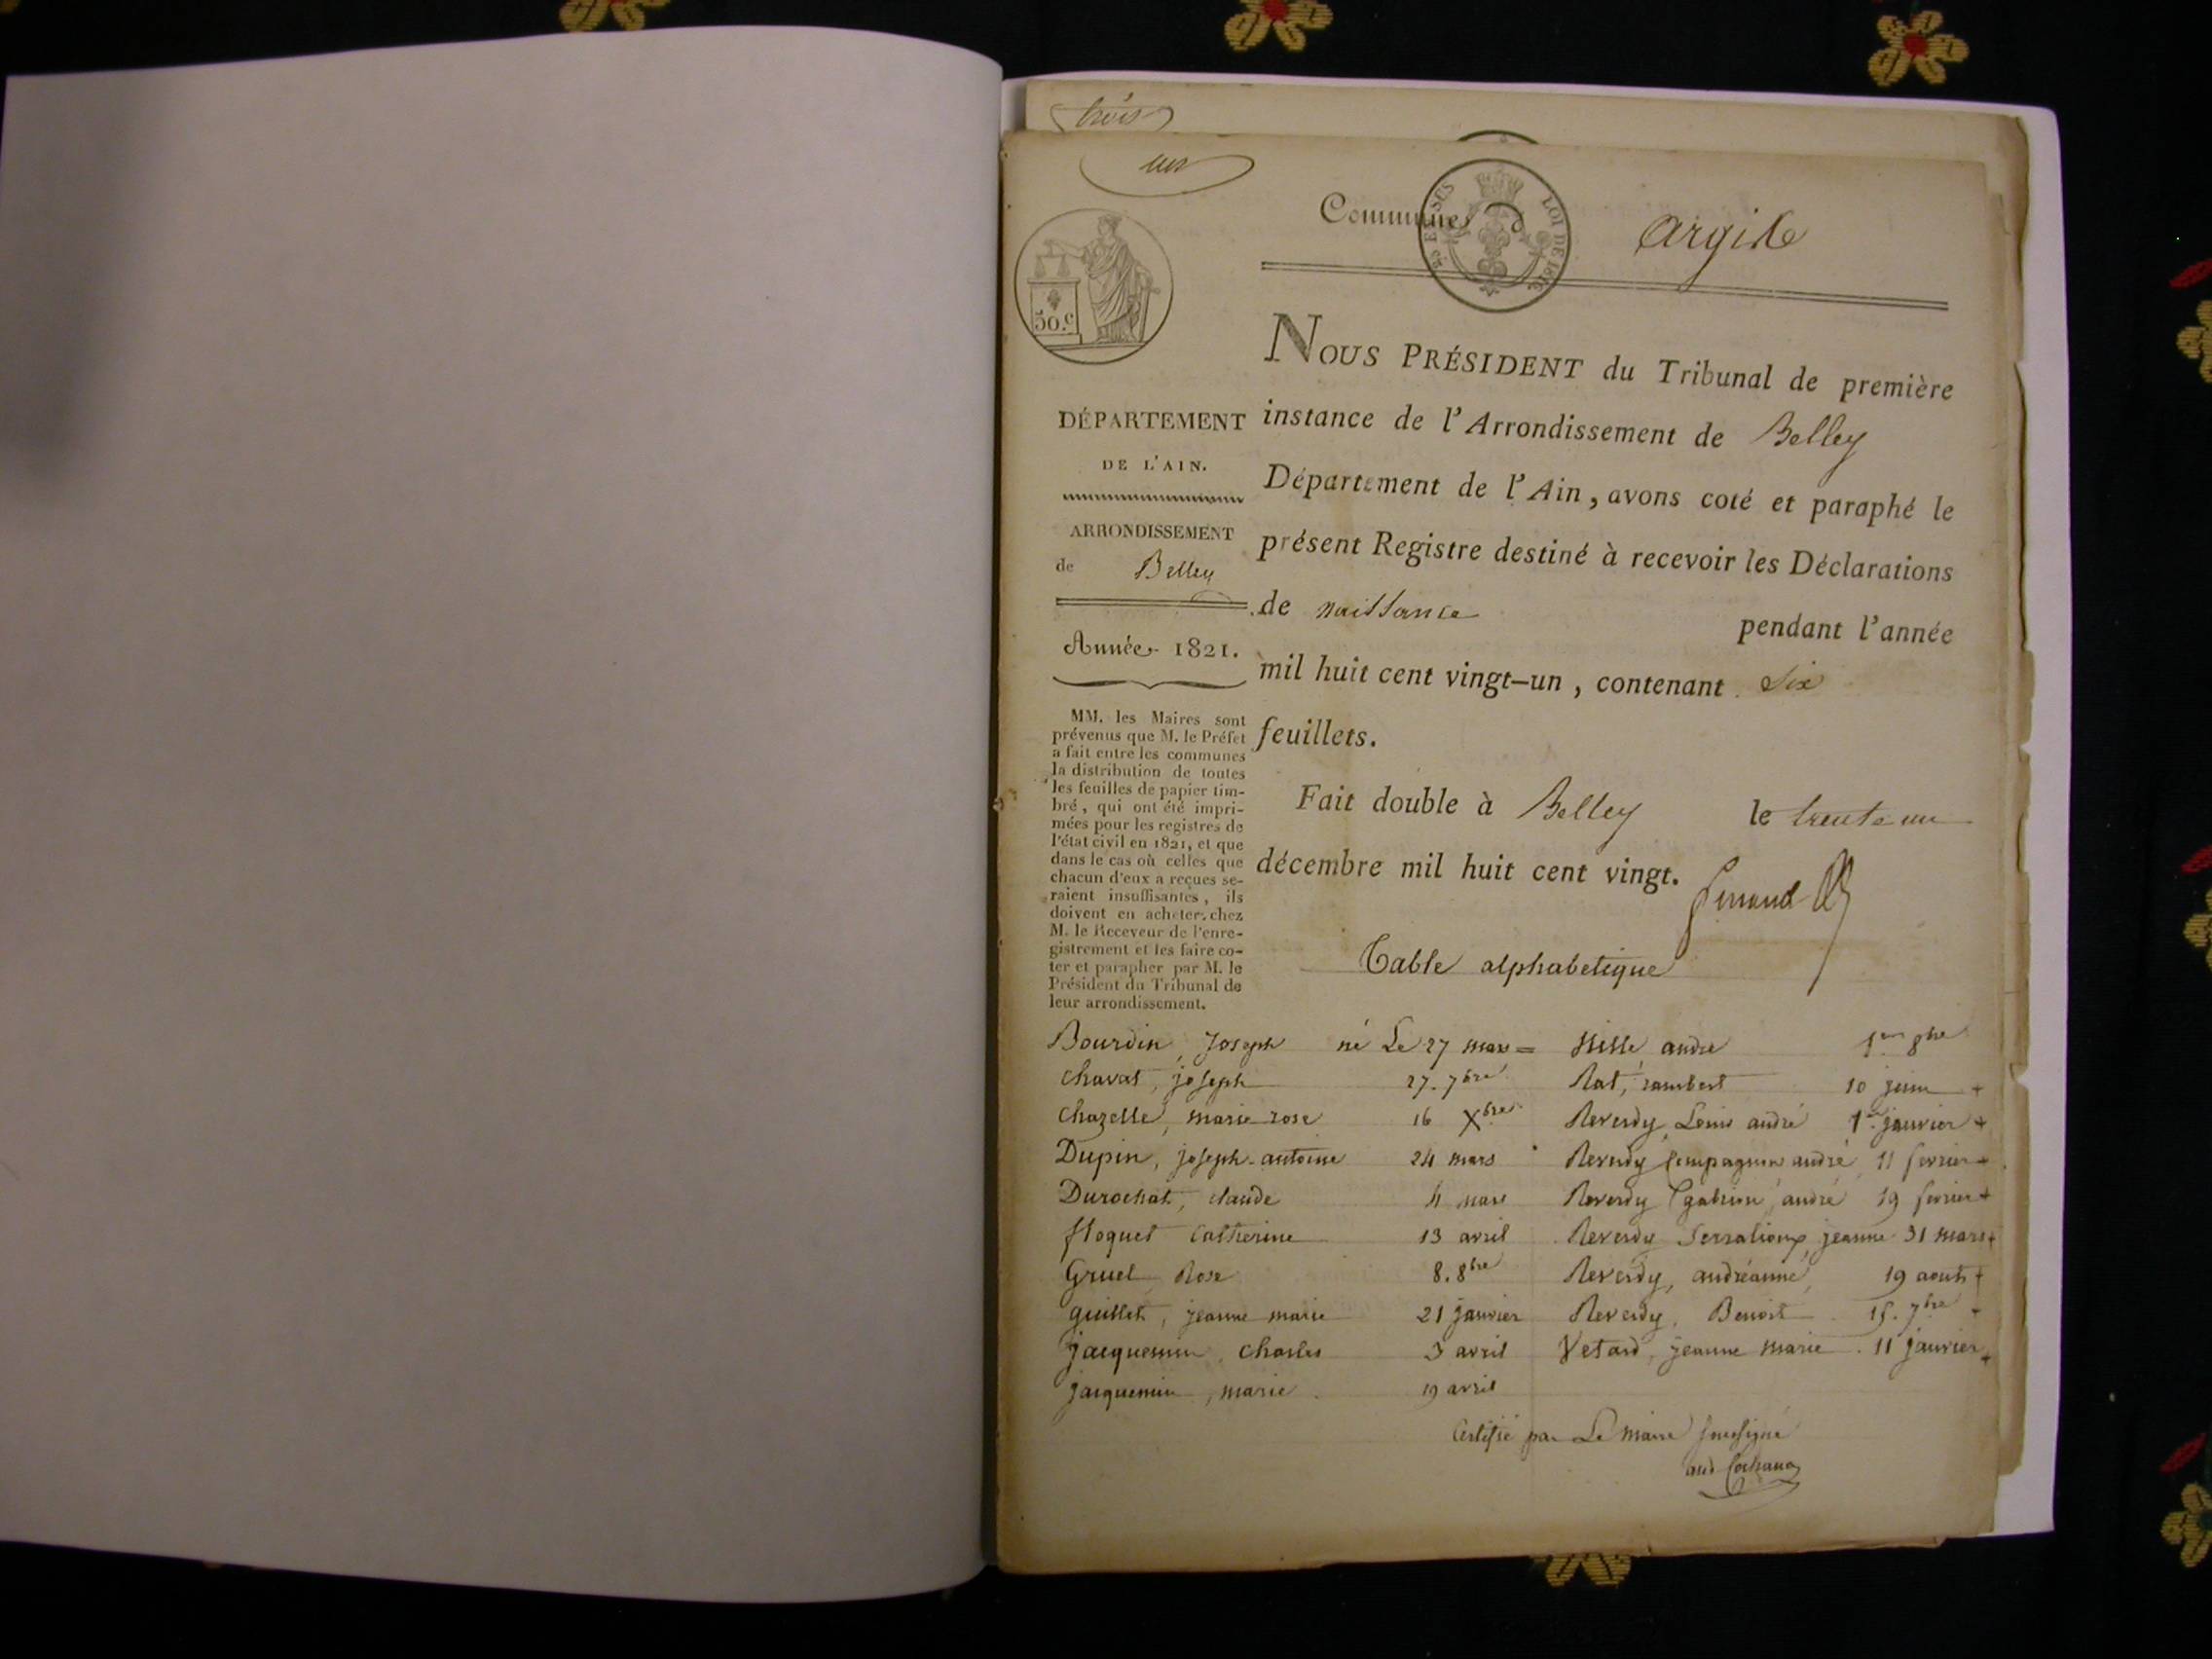 trois
un
Commune d argis
50.c
LOI DE 1816
NOUS PRÉSIDENT du Tribunal de première
DÉPARTEMENT
instance de l'Arrondissement de Belley
DE L'AIN.
Département de l'Ain, avons coté et paraphé le
ARRONDISSEMENT
de Belley
présent Registre destiné à recevoir les Déclarations
de naissance pendant l'année
Année 1821.
mil huit cent vingt-un, contenant six
feuillets.
MM. les Maires sont
prévenus que M. le Préfet
a fait entre les communes
la distribution de toutes
les feuilles de papier tim-
bré, qui ont été impri-
mées pour les registres de
l'état civil en 1821, et que
dans le cas où celles que
chacun d'eux a reçues se-
raient insuffisantes, ils
doivent en acheter chez
M. le Receveur de l'enre-
gistrement et les faire co-
ter et parapher par M. le
Président du Tribunal de
leur arrondissement.
Fait double à Belley le trente un
décembre mil huit cent vingt.
Table alphabetique
Bourdin, Joseph né Le 27 mars
chavat, joseph 27. 7bre
chazelle, marie rose 16 Xbre
Dupin, joseph-antoine 24 mars
Durochat, claude 4 mars
floquet Catherine 13 avril
Gruel Rose 8. 8bre
guillet, jeanne marie 21 janvier
jacquemin, charles 3 avril
jacquemin, marie 19 avril
Mille andré 1er 8bre
Rat, rambert 10 juin +
Reverdy, Louis andré 1er janvier +
Reverdy Compagnon andré 11 fevrier +
Reverdy andré 19 fevrier +
Reverdy jeanne 31 mars +
Reverdy, andréanne, 19 aout +
Reverdy, Benoit 15. 7bre +
Vetard, jeanne marie 11 janvier +
Certifié par Le maire soussigné